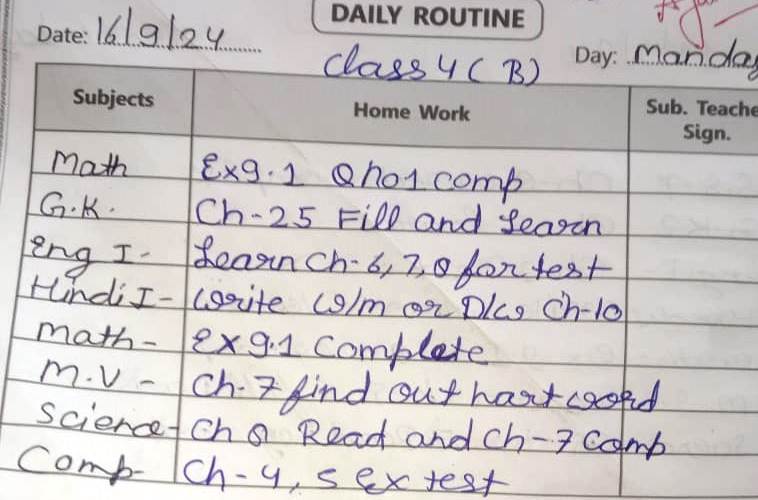 DAILY ROUTINE
Date: 16/9/24
Class 4 (B)
Day: Manday
Subjects Home Work Sub. Teache Sign.
Math Ex9.1 Qno1 comp
G.K. Ch-25 Fill and Learn
Eng I- Learn Ch-6,7,8 for test
Hindi I- Write W/m or D/W Ch-10
Math- Ex 9.1 Complete
M.V- Ch-7 find out hart word
Science- Ch 8 Read and Ch-7 Comp
Comp- Ch-4,5 Ex test